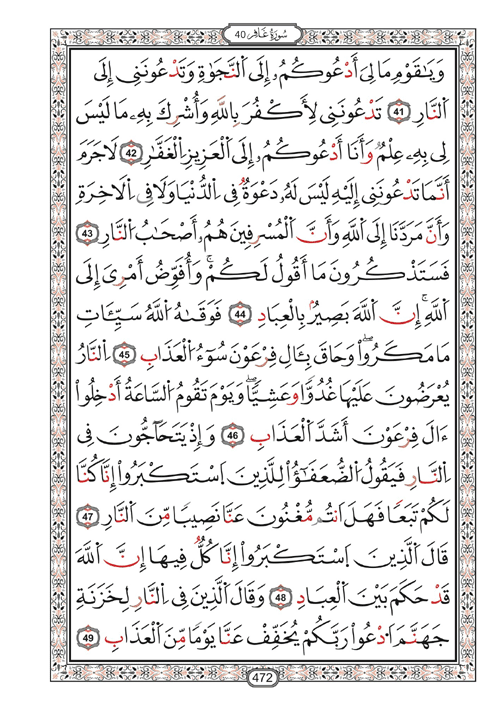 سُورَةُ غَافِر 40
وَيَٰقَوْمِ مَا لِىَ أَدْعُوكُمُۥ إِلَى اَ۬لنَّجَوٰةِ وَتَدْعُونَنِى إِلَى
اَ۬لنَّارِ 41 تَدْعُونَنِى لِأَكْفُرَ بِاللَّهِ وَأُشْرِكَ بِهِۦ مَا لَيْسَ
لِى بِهِۦ عِلْمٌ وَأَنَا أَدْعُوكُمُۥ إِلَى اَ۬لْعَزِيزِ اِ۬لْغَفَّٰرِ 42 لَا جَرَمَ
أَنَّمَا تَدْعُونَنِى إِلَيْهِ لَيْسَ لَهُۥ دَعْوَةٌ فِى اِ۬لدُّنْيَا وَلَا فِى اِ۬لْأَخِرَةِ
وَأَنَّ مَرَدَّنَا إِلَى اَ۬للَّهِ وَأَنَّ اَ۬لْمُسْرِفِينَ هُمُۥ أَصْحَٰبُ اُ۬لنَّارِ 43
فَسَتَذْكُرُونَ مَا أَقُولُ لَكُمْۚ وَأُفَوِّضُ أَمْرِىَ إِلَى
اَ۬للَّهِۚ إِنَّ اَ۬للَّهَ بَصِيرٌۢ بِالْعِبَادِ 44 فَوَقَىٰهُ اُ۬للَّهُ سَيِّـَٔاتِ
مَا مَكَرُواْۖ وَحَاقَ بِـَٔالِ فِرْعَوْنَ سُوٓءُ اُ۬لْعَذَابِ 45 اِ۬لنَّارُ
يُعْرَضُونَ عَلَيْهَا غُدُوّٗا وَعَشِيّٗاۖ وَيَوْمَ تَقُومُ اُ۬لسَّاعَةُ أَدْخِلُواْ
ءَالَ فِرْعَوْنَ أَشَدَّ اَ۬لْعَذَابِ 46 وَإِذْ يَتَحَآجُّونَ فِى
اِ۬لنَّارِ فَيَقُولُ اُ۬لضُّعَفَٰٓؤُاْ لِلَّذِينَ اَ۪سْتَكْبَرُواْ إِنَّا كُنَّا
لَكُمْ تَبَعٗا فَهَلْ أَنتُمۥ مُّغْنُونَ عَنَّا نَصِيبٗا مِّنَ اَ۬لنَّارِ 47
قَالَ اَ۬لَّذِينَ اَ۪سْتَكْبَرُواْ إِنَّا كُلّٞ فِيهَا إِنَّ اَ۬للَّهَ
قَدْ حَكَمَ بَيْنَ اَ۬لْعِبَادِ 48 وَقَالَ اَ۬لَّذِينَ فِى اِ۬لنَّارِ لِخَزَنَةِ
جَهَنَّمَ اَ۟دْعُواْ رَبَّكُمْ يُخَفِّفْ عَنَّا يَوْمٗا مِّنَ اَ۬لْعَذَابِ 49
472